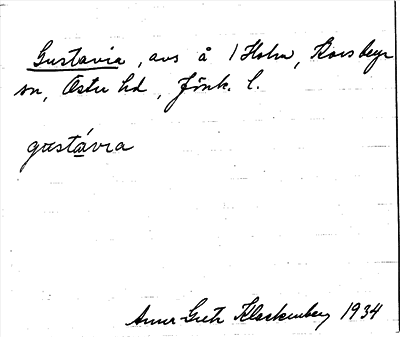 Gustavia, avs å 1 Holm, Korsbery
sn, Östra hd, Jönk. l.
gustávıa
Anna-Greta Klockenberg 1934